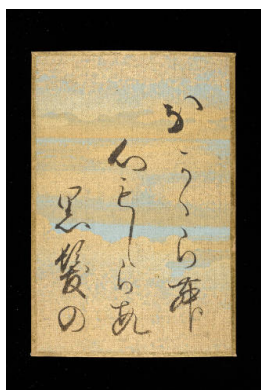 なかゝらむ
心もしらす
黒髪の